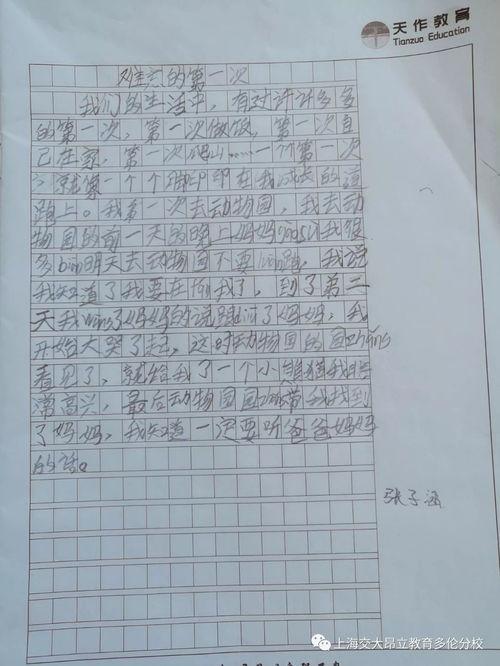 天作教育
Tianzuo Education
难忘的第一次
我们的生活中，有过许许多多
的第一次，第一次做饭，第一次自
己在家，第一次爬山……一个个第一次
就第一个个脚印印在我成长的道
路上。我第一次去动物园，我去动
物园的前一天的晚上妈妈 我很
多 明天去动物园不要 ，我说
我知道了我要在 我了，到了第二
天我wang了妈妈的话跟 了妈妈，我
开始大哭了起，这时动物园的园
看见了，就给我了一个小熊猫我非
常高兴，最后动物园园 带我找到
了妈妈，我知道一定要听爸爸妈妈
的话。
张子涵
上海交大昂立教育多伦分校